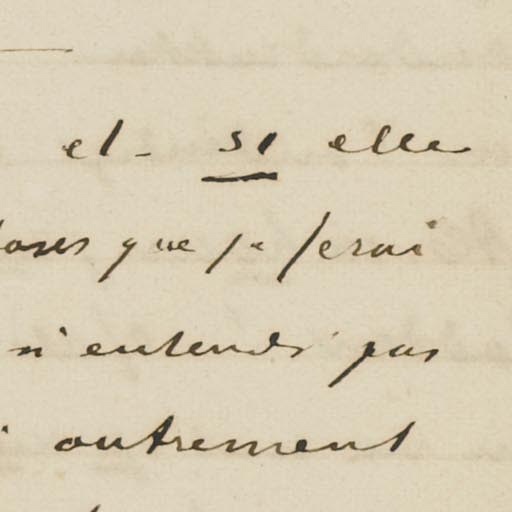 et - si elle
que je ferai
n'entends pas
autrement